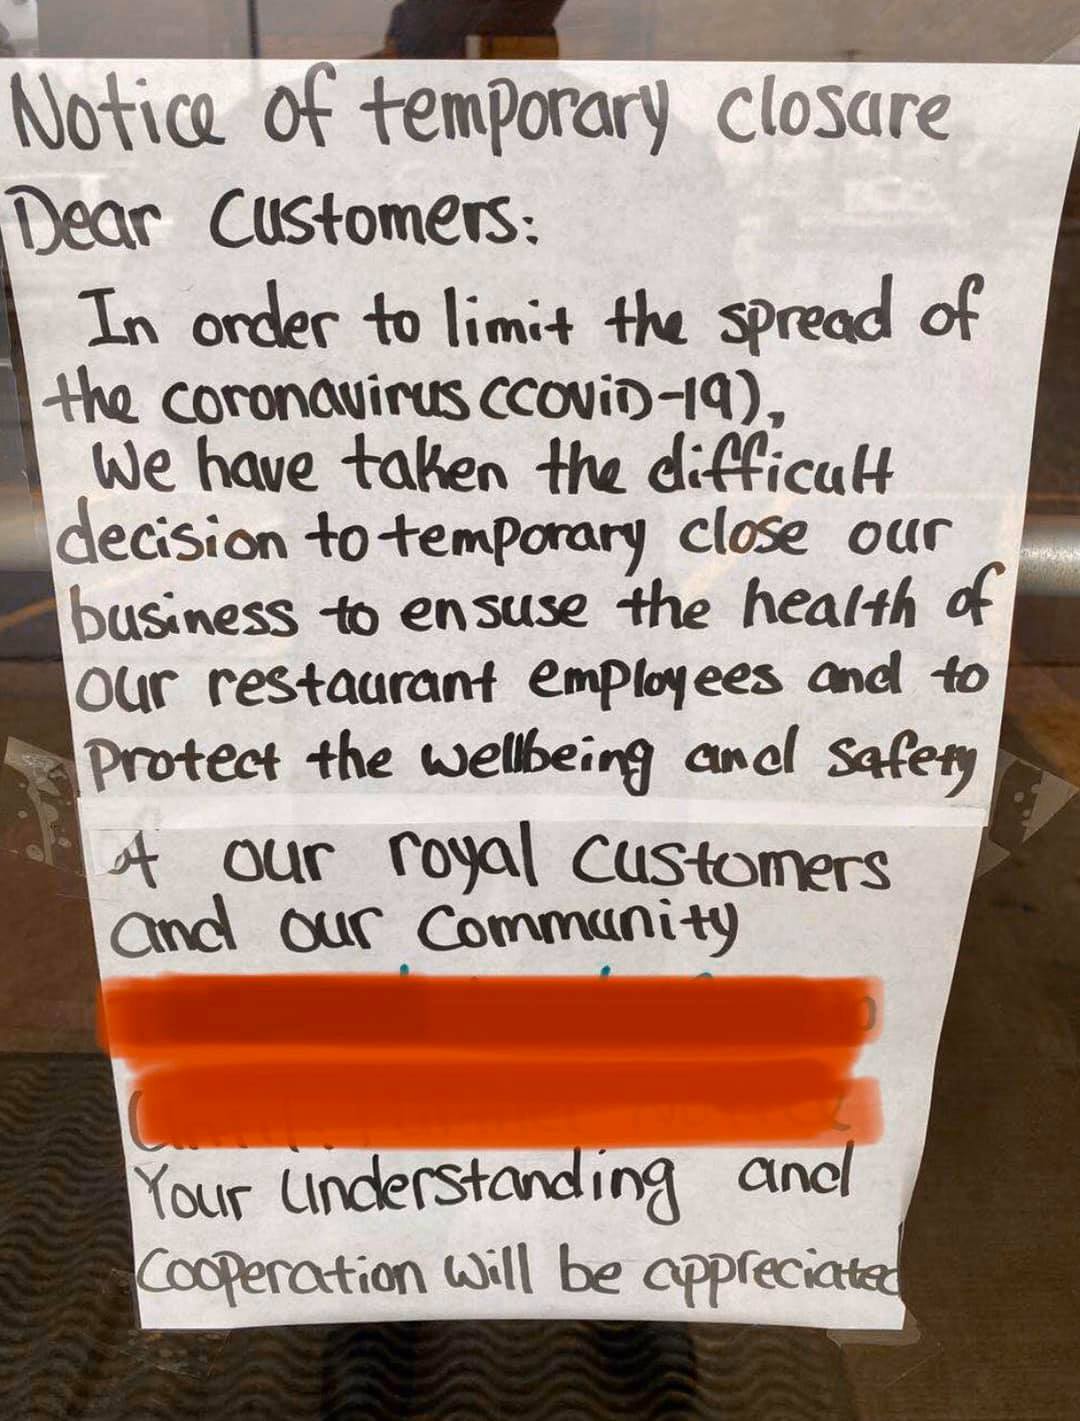 Notice of temporary closure
Dear Customers:
In order to limit the spread of
the coronavirus (COViD-19),
We have taken the difficult
decision to temporary close our
business to ensuse the health of
our restaurant employees and to
Protect the wellbeing and safety
of our royal customers
and our Community
Your Understanding and
Cooperation will be appreciated